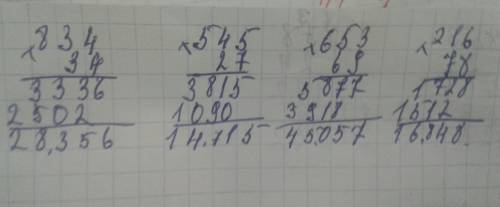 ×834
34
3336
2502
28,356
×545
27
3815
1090
14.715
×653
69
5877
3918
45.057
×216
78
1728
1512
16.848.